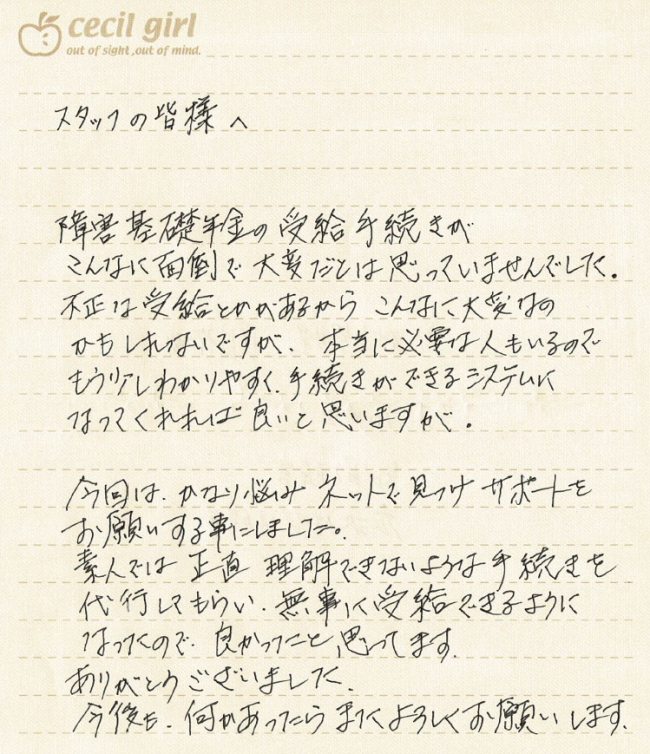 cecil girl
out of sight ,out of mind.
スタッフの皆様へ
障害基礎年金の受給手続きが
こんなに面倒で大変だとは思っていませんでした。
不正な受給とかがあるから こんなに大変なの
かもしれないですが、本当に必要な人もいるので
もう少しわかりやすく、手続きができるシステムに
なってくれれば良いと思いますが。
今回は、かなり悩み ネットで見つけ サポートを
お願いする事にしました。
素人では 正直 理解できないような手続きを
代行してもらい、無事に受給できるように
なったので、良かったこと思ってます。
ありがとうございました。
今後も、何かあったら またよろしくお願いします。